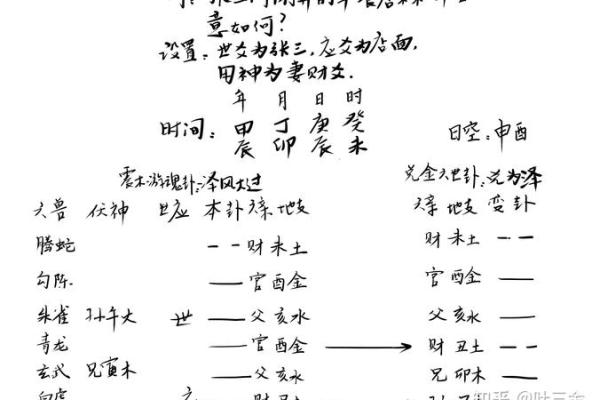 意如何?
设置:世爻为张三,应爻为店面,
用神为妻财爻.
年 月 日 时
时间: 甲 丁 庚 癸 日空:申酉
辰 卯 辰 未
震木游魂卦:泽风大过 兑金六世卦:兑为泽
六兽 伏神 世应 本卦 六亲 地支 六亲 地支 变卦
腾蛇 财未土 财未土
勾陈 官酉金 官酉金
朱雀 孙午火 世 父亥水 父亥水
青龙 官酉金 财丑土
玄武 兄寅木 父亥水 兄卯木